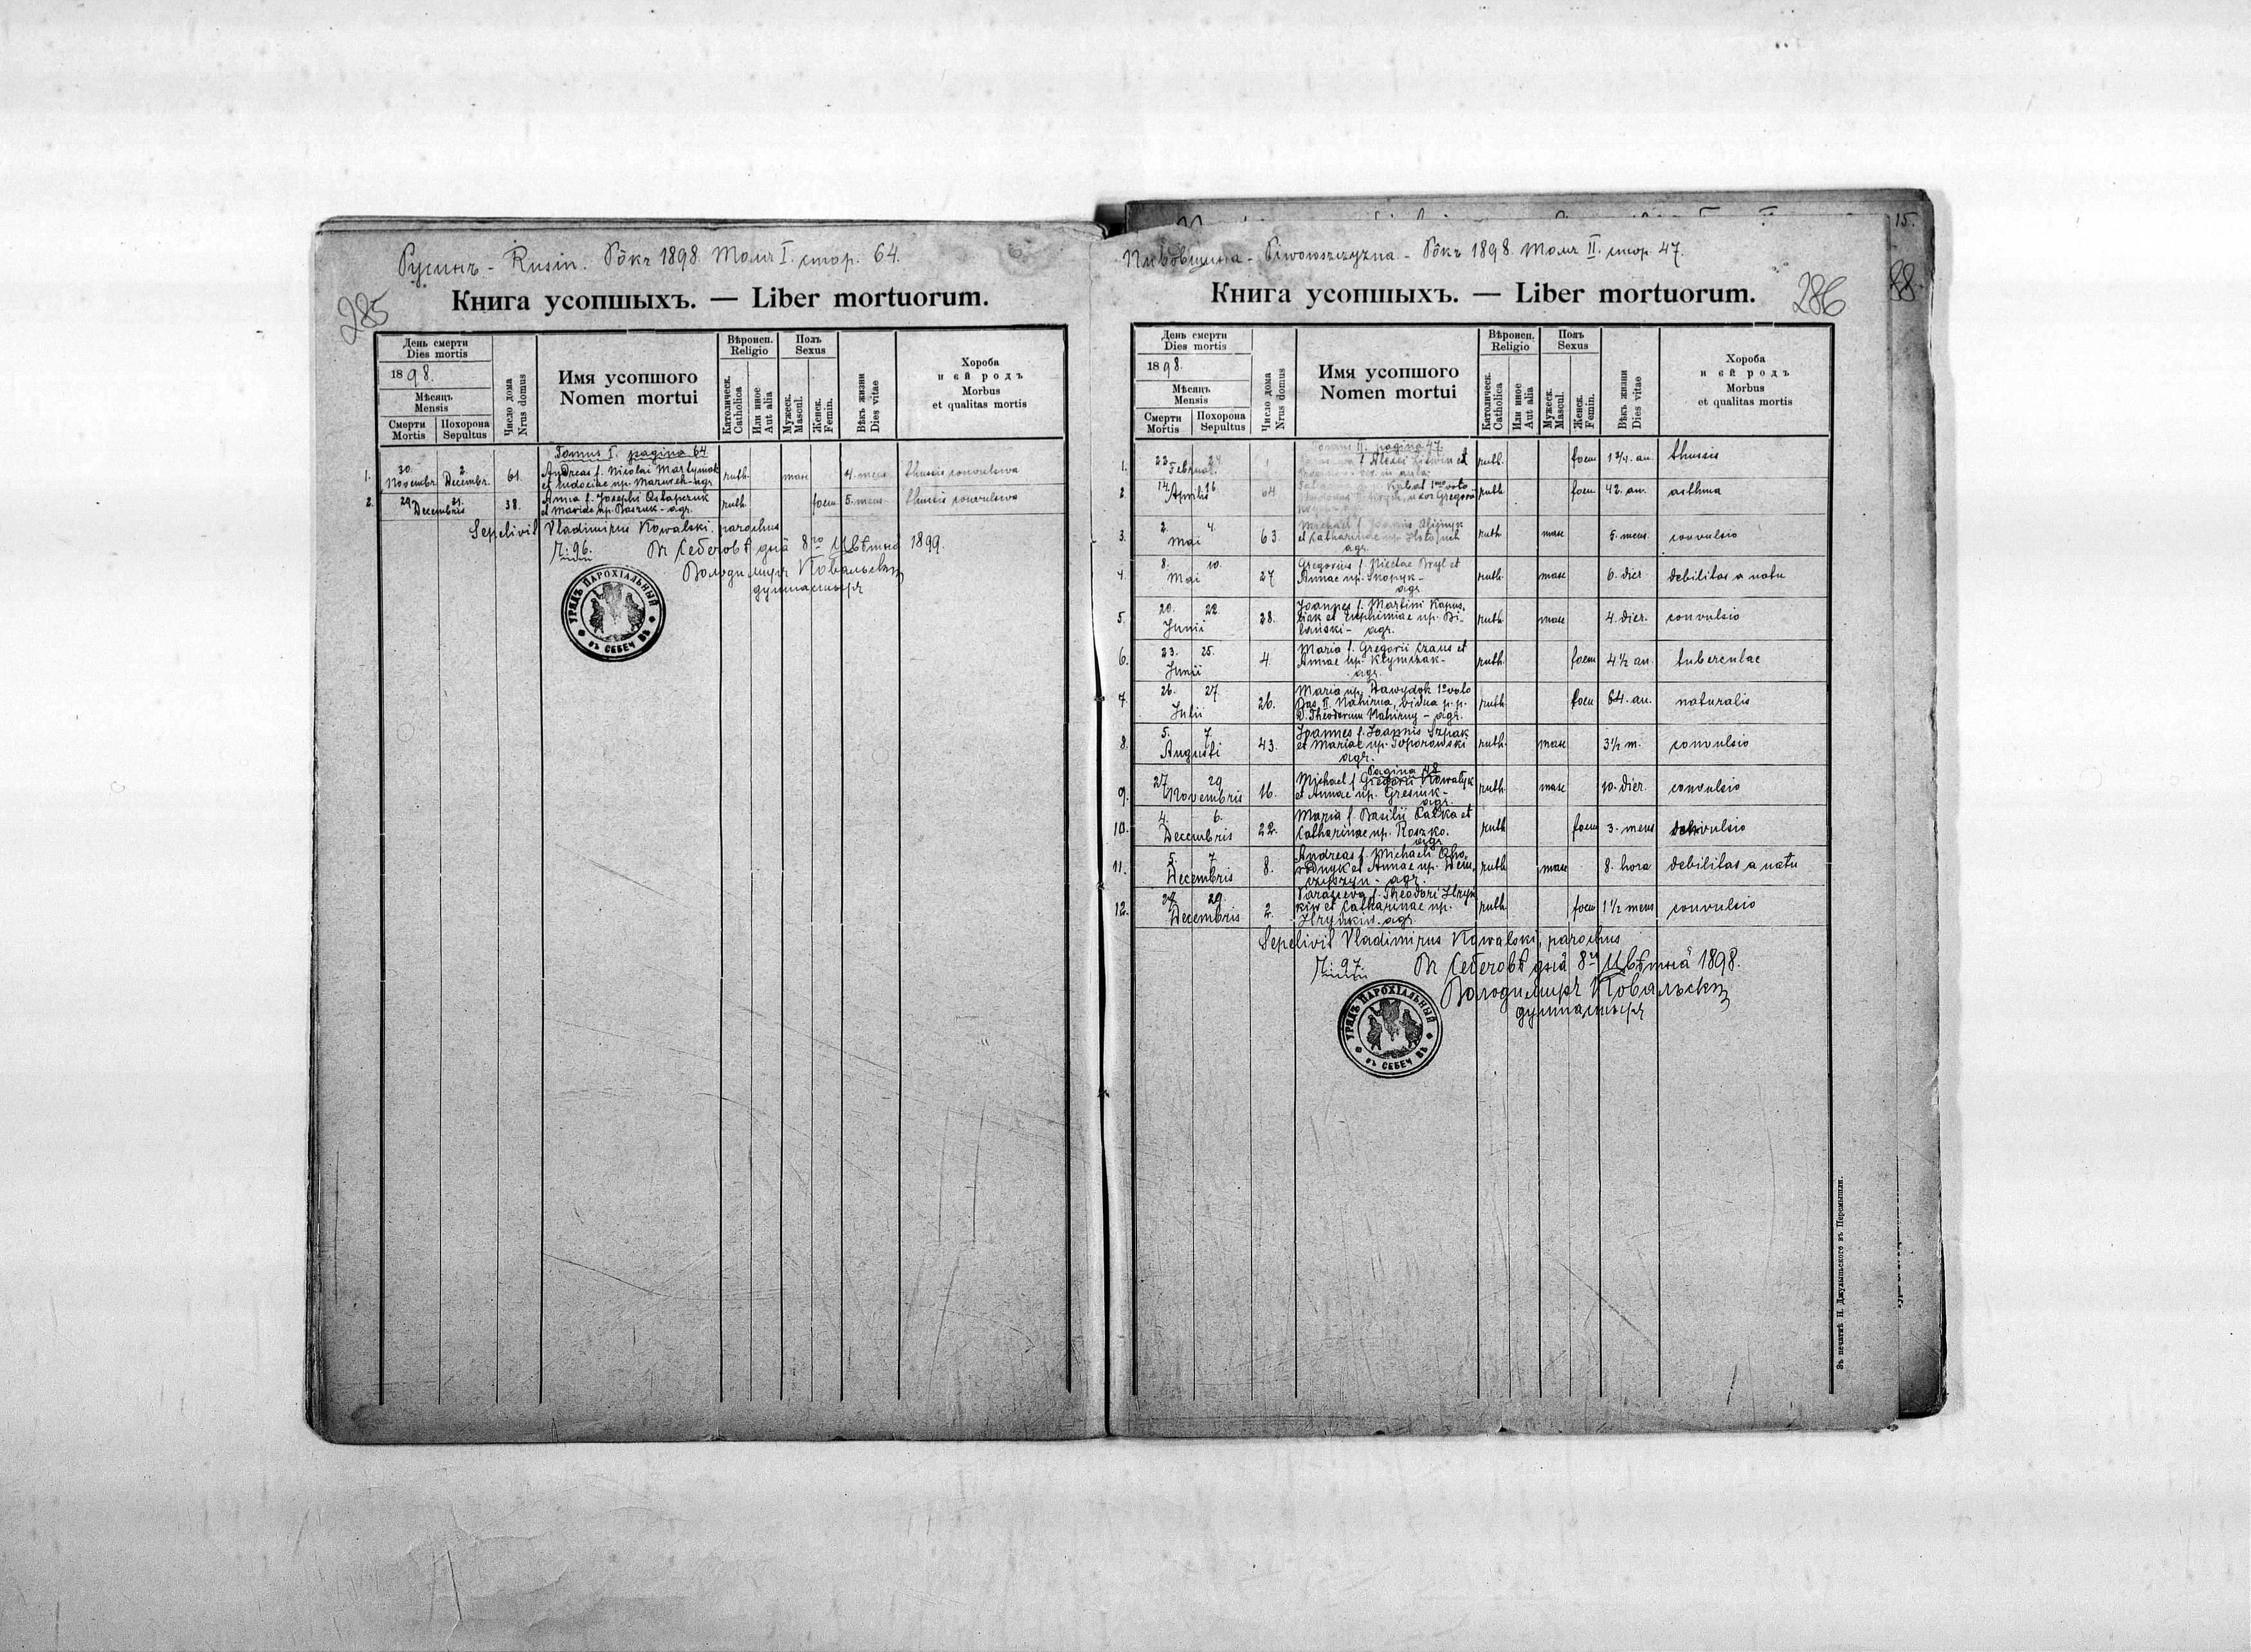 Русинъ - Rusin. Рôкъ 1898. Томъ I. стор. 64.
285
Книга усопшыхъ. — Liber mortuorum.
День смерти
Dies mortis
1898.
Мѣсяць
Mensis
Смерти
Mortis
Похорона
Sepultus
Число дома
Nrus domus
Имя усопшого
Nomen mortui
Вѣроисп.
Religio
Католическ.
Catholica
Или иное
Aut alia
Полъ
Sexus
Мужеск.
Mascul.
Женск.
Femin.
Вѣкъ жизни
Dies vitae
Хороба
и єй родъ
Morbus
et qualitas mortis
Tomus I. pagina 64
1. 30. Novembr. 2. Decembr. 61. Andreas f. Nicolai Martyniuk ruth. masc 4. mens. thussis convulsiva
et Eudociae np. Maruseh - agr.
2. 29. 31. Decembris 38. Anna f. Josephi Ostapczuk ruth. foem 5. mens thussis convulsiva
et Mariae np. Paszuk - agr.
Sepelivit Vladimirus Kowalski, parochus
Ч: 96. Въ Себечовѣ дня 8го Цвѣтня 1899.
Володимиръ Ковальскій
душпастырь
УРЯДЪ ПАРОХІАЛЬНЫЙ
въ СЕБЕЧ ВѢ
Пивовщина - Piwowszczyzna - Рôкъ 1898. Томъ II. стор. 47.
15.
88.
286
Книга усопшыхъ. — Liber mortuorum.
День смерти
Dies mortis
1898.
Мѣсяць
Mensis
Смерти
Mortis
Похорона
Sepultus
Число дома
Nrus domus
Имя усопшого
Nomen mortui
Вѣроисп.
Religio
Католическ.
Catholica
Или иное
Aut alia
Полъ
Sexus
Мужеск.
Mascul.
Женск.
Femin.
Вѣкъ жизни
Dies vitae
Хороба
и єй родъ
Morbus
et qualitas mortis
Tomus II. pagina 47.
1. 23 24. Februar. f. Alexii Litwin et ruth. foem 1 3/4. an. thussis
2. 14 16 Aprilis 64 Kabal 1mo voto ruth. foem 42. an. asthma
uxor Gregorii
3. 2. 4. Mai 63. Michael f. Joannis Olijnyk ruth masc 5. mens. convulsio
et Catharinae np.
agr.
4. 8. 10. Mai 27 Gregorius f. Nicetae Bryl et ruth. masc 6. dier debilitas a natu
Annae np. Skopyk -
agr
5. 20. 22. Junii 28. Joannes f. Martini Kapus- ruth. masc 4. dier. convulsio
tiak et Euphimiae np. Bi-
lanski - agr.
6. 23. 25. Junii 4. Maria f. Gregorii Czaus et ruth. foem 4 1/2 an. tuberculae
Annae np. Klymczak -
agr.
7. 26. 27. Julii 26. Maria np. Dawydok 1º voto ruth. foem 64. an. naturalis
Pas, II. Nahirna, vidua p. p.
D. Theodorum Nahirny - agr.
8. 5. 7. Augusti 43. Joannes f. Joannis Szpak ruth. masc 3 1/2 m. convulsio
et Mariae np. Toporowski
agr.
Pagina 48
9. 27 29 Novembris 16. Michael f. Gregorii Kowalyk ruth. masc 10. dier. convulsio
et Annae np. Gresiuk -
agr.
10. 4. 6. Decembris 22. Maria f. Basilii Kalka et ruth foem 3. mens convulsio
Catharinae np. Roszko.
agr
11. 5. 7 Decembris 8. Andreas f. Michaeli Oho- ruth. masc 8. hora debilitas a natu
rodnyk et Annae np. Dem-
czyszyn - agr.
12. 27 29. Decembris 2. Parasceva f. Theodori Hryn- ruth. foem 1 1/2 mens convulsio
kiw et Catharinae np.
Hryńkiw. agr.
Sepelivit Vladimirus Kowalski, parochus
Ч: 97. Въ Себечовѣ дня 8го Цвѣтня 1898.
Володимиръ Ковальскій
душпастырь
УРЯДЪ ПАРОХІАЛЬНЫЙ
въ СЕБЕЧ ВѢ
Зъ печатнѣ Н. Джулыньского въ Перемышли.